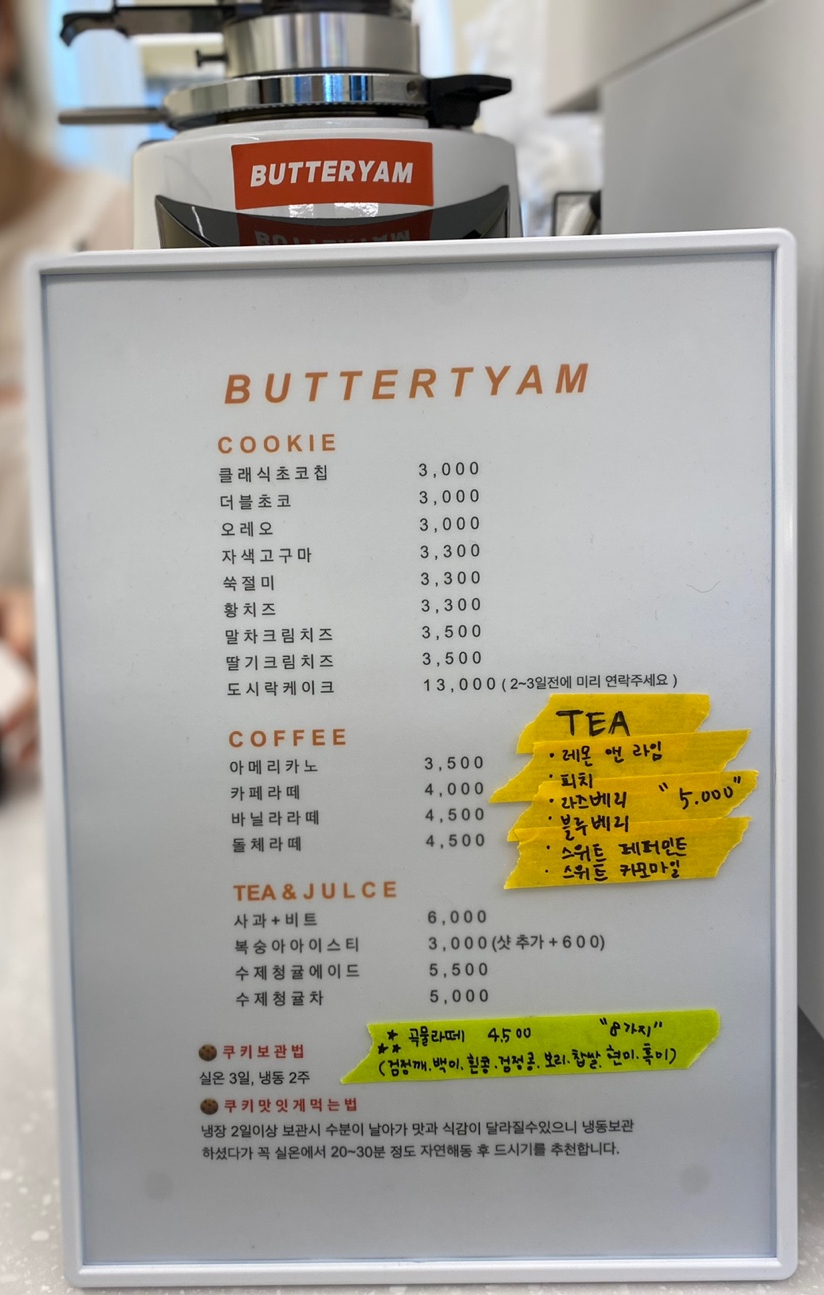 BUTTERYAM
BUTTERTYAM
COOKIE
클래식초코칩 3,000
더블초코 3,000
오레오 3,000
자색고구마 3,300
쑥절미 3,300
황치즈 3,300
말차크림치즈 3,500
딸기크림치즈 3,500
도시락케이크 13,000 ( 2~3일전에 미리 연락주세요 )
COFFEE
아메리카노 3,500
카페라떼 4,000
바닐라라떼 4,500
돌체라떼 4,500
TEA
· 레몬 앤 라임
· 피치
· 라즈베리 "5.000"
· 블루베리
· 스위트 페퍼민트
· 스위트 카모마일
TEA&JULCE
사과+비트 6,000
복숭아아이스티 3,000(샷 추가+600)
수제청귤에이드 5,500
수제청귤차 5,000
곡물라떼 4.500 "8가지"
(검정깨.백미.흰콩.검정콩.보리.찹쌀.현미.흑미)
쿠키보관법
실온 3일, 냉동 2주
쿠키맛잇게먹는법
냉장 2일이상 보관시 수분이 날아가 맛과 식감이 달라질수있으니 냉동보관
하셨다가 꼭 실온에서 20~30분 정도 자연해동 후 드시기를 추천합니다.